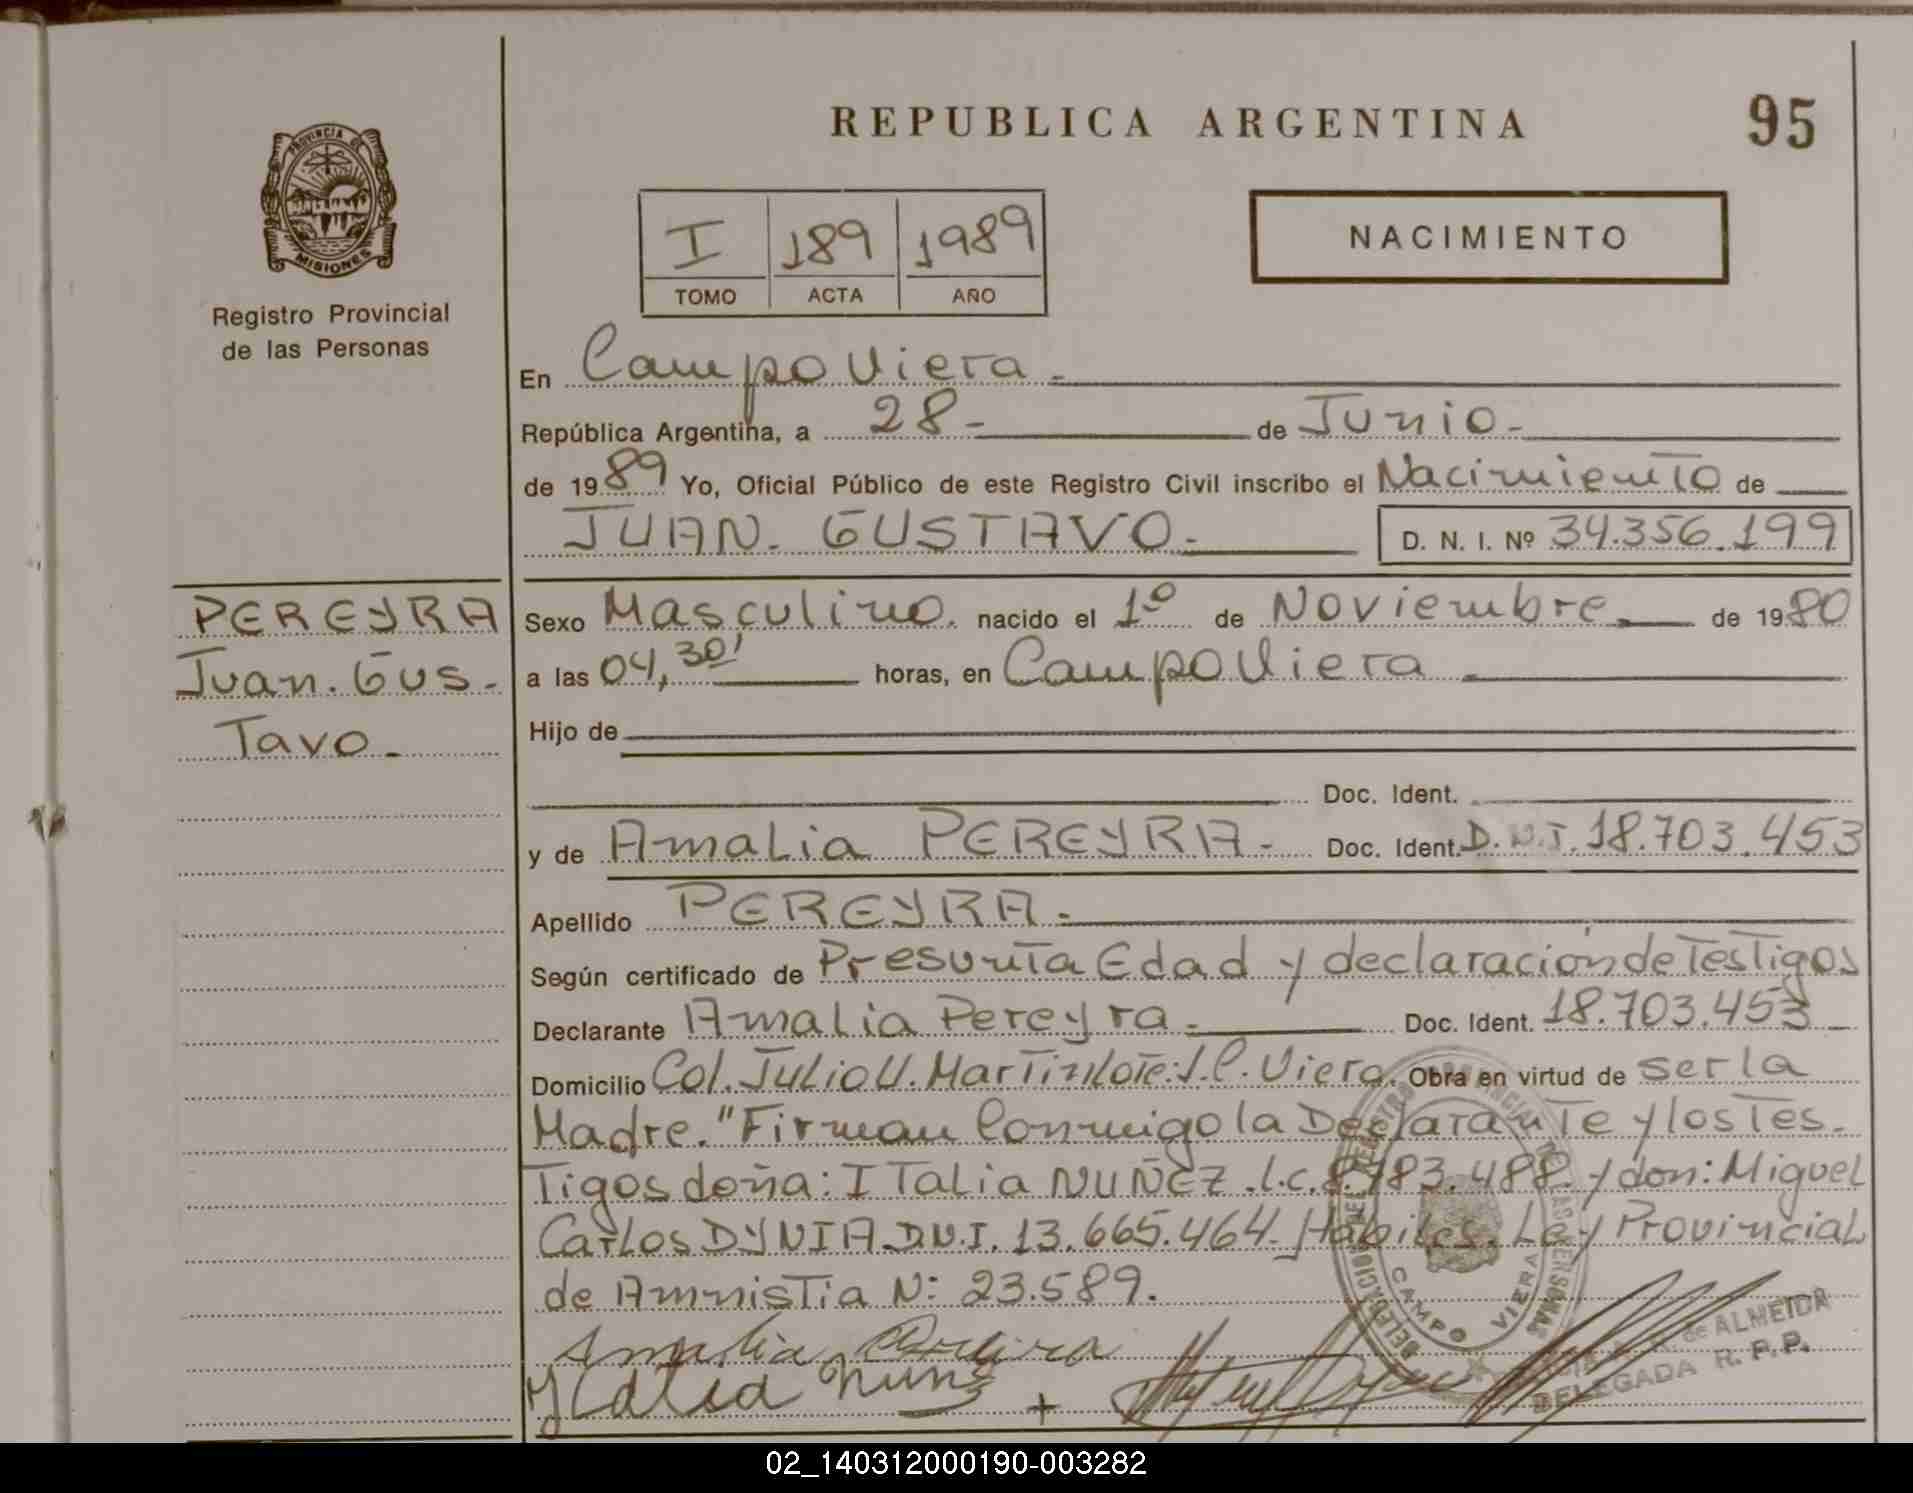 REPUBLICA ARGENTINA
95
PROVINCIA DE
MISIONES
Registro Provincial
de las Personas
I 189 1989
TOMO ACTA AÑO
NACIMIENTO
En Campo Viera.-
República Argentina, a 28- de Junio.-
de 1989 Yo, Oficial Público de este Registro Civil inscribo el Nacimiento de
JUAN. GUSTAVO.- D. N. I. Nº 34.356.199
PEREYRA
Juan. Gus-
Tavo.-
Sexo Masculino. nacido el 1º de Noviembre de 1980
a las 04,30' horas, en Campo Viera
Hijo de
Doc. Ident.
y de Amalia PEREYRA.- Doc. Ident. D.N.I. 18.703.453
Apellido PEREYRA.-
Según certificado de Presunta Edad y declaración de Testigos
Declarante Amalia Pereyra.- Doc. Ident. 18.703.453
Domicilio Col. Julio U. Martin lote: 1. C. Viera. Obra en virtud de ser la
Madre. "Firman Conmigo la Declarante y los Tes-
Tigos doña: ITalia NUÑEZ. L.C. 8.783.488. y don: Miguel
Carlos DYNIA D.N.I. 13.665.464. Habiles. Ley Provincial
de AmnisTia N: 23.589.
CAMPO VIERA
Amalia Pereira
Ytalia Nunes
de ALMEIDA
DELEGADA R. P. P.
02_140312000190-003282